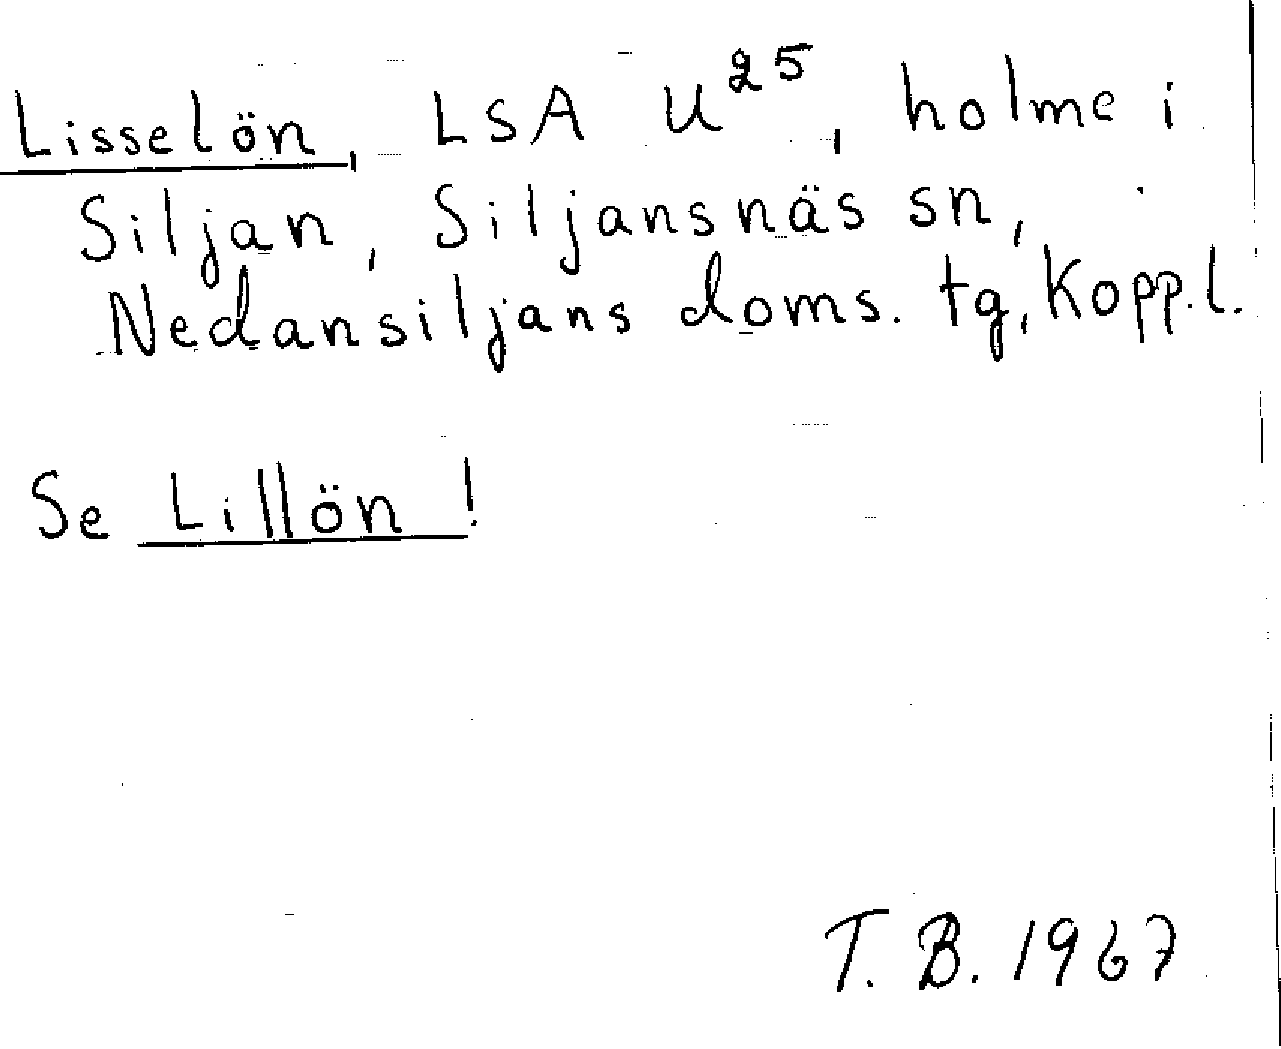 Lisselön, LSA U²⁵, holme i
Siljan, Siljansnäs sn,
Nedansiljans doms. tg, Kopp.l.
Se Lillön!
T. B. 1967